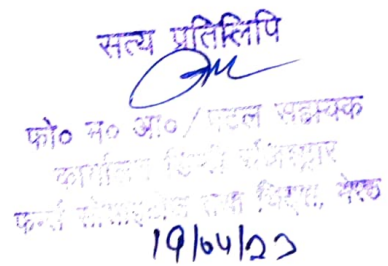 सत्य प्रतिलिपि
फो० न० आ०/पटल सहायक
कार्यालय डिप्टी रजिस्ट्रार
फर्म्स सोसाइटीज तथा चिट्स, मेरठ
19/04/23